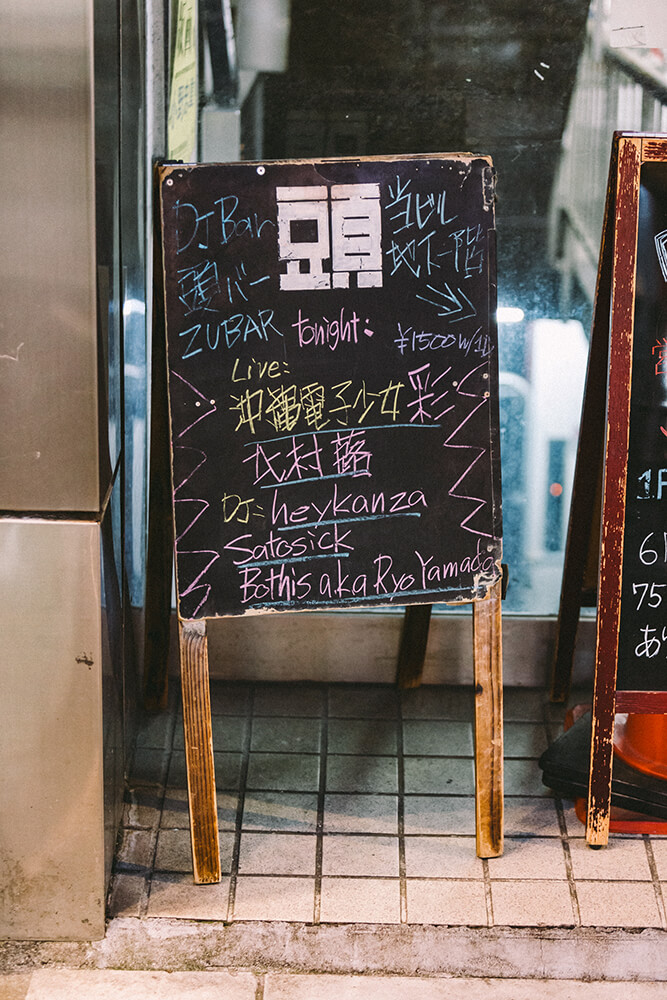 DJ Bar
頭バー
ZUBAR
頭
当ビル
地下一階
tonight:
¥1500 w/1d
Live:
沖縄電子少女彩
氏村 蕗
DJ: heykanza
Satosick
Bothis aka Ryo Yamada